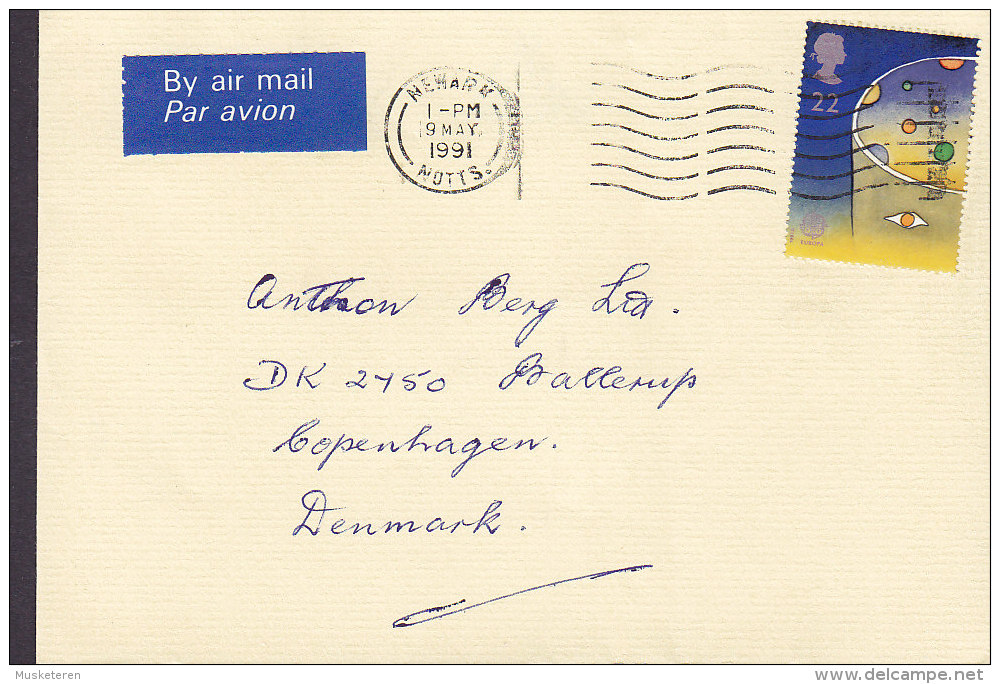 By air mail
Par avion
NEWARK
1-PM
19 MAY.
1991
NOTTS.
22
EUROPA
Anthon Berg Ltd.
DK 2750 Ballerup
Copenhagen.
Denmark.
Musketeren
delcampe.net